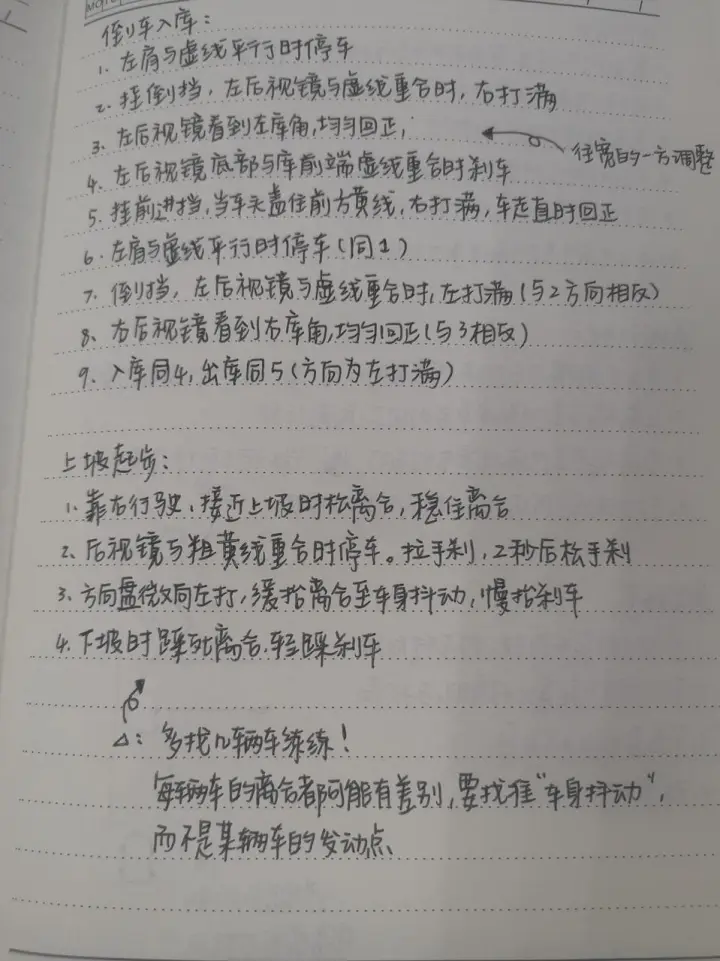 倒车入库:
1. 左肩与虚线平行时停车
2. 挂倒挡, 左后视镜与虚线重合时, 右打满
3. 左后视镜看到左库角, 均匀回正,
往宽的一方调整
4. 左后视镜底部与库前端虚线重合时刹车
5. 挂前进挡, 当车头盖住前方黄线, 右打满, 车走直时回正
6. 左肩与虚线平行时停车(同1)
7. 倒挡, 左后视镜与虚线重合时, 左打满(与2方向相反)
8. 右后视镜看到右库角, 均匀回正(与3相反)
9. 入库同4, 出库同5(方向为左打满)
上坡起步:
1. 靠右行驶、接近上坡时松离合, 稳住离合
2. 后视镜与粗黄线重合时停车。拉手刹, 2秒后松手刹
3. 方向盘微向左打, 缓抬离合至车身抖动, 慢抬刹车
4. 下坡时踩死离合, 轻踩刹车
△: 多找几辆车练练!
每辆车的离合都可能有差别, 要找准“车身抖动”,
而不是某辆车的发动点、